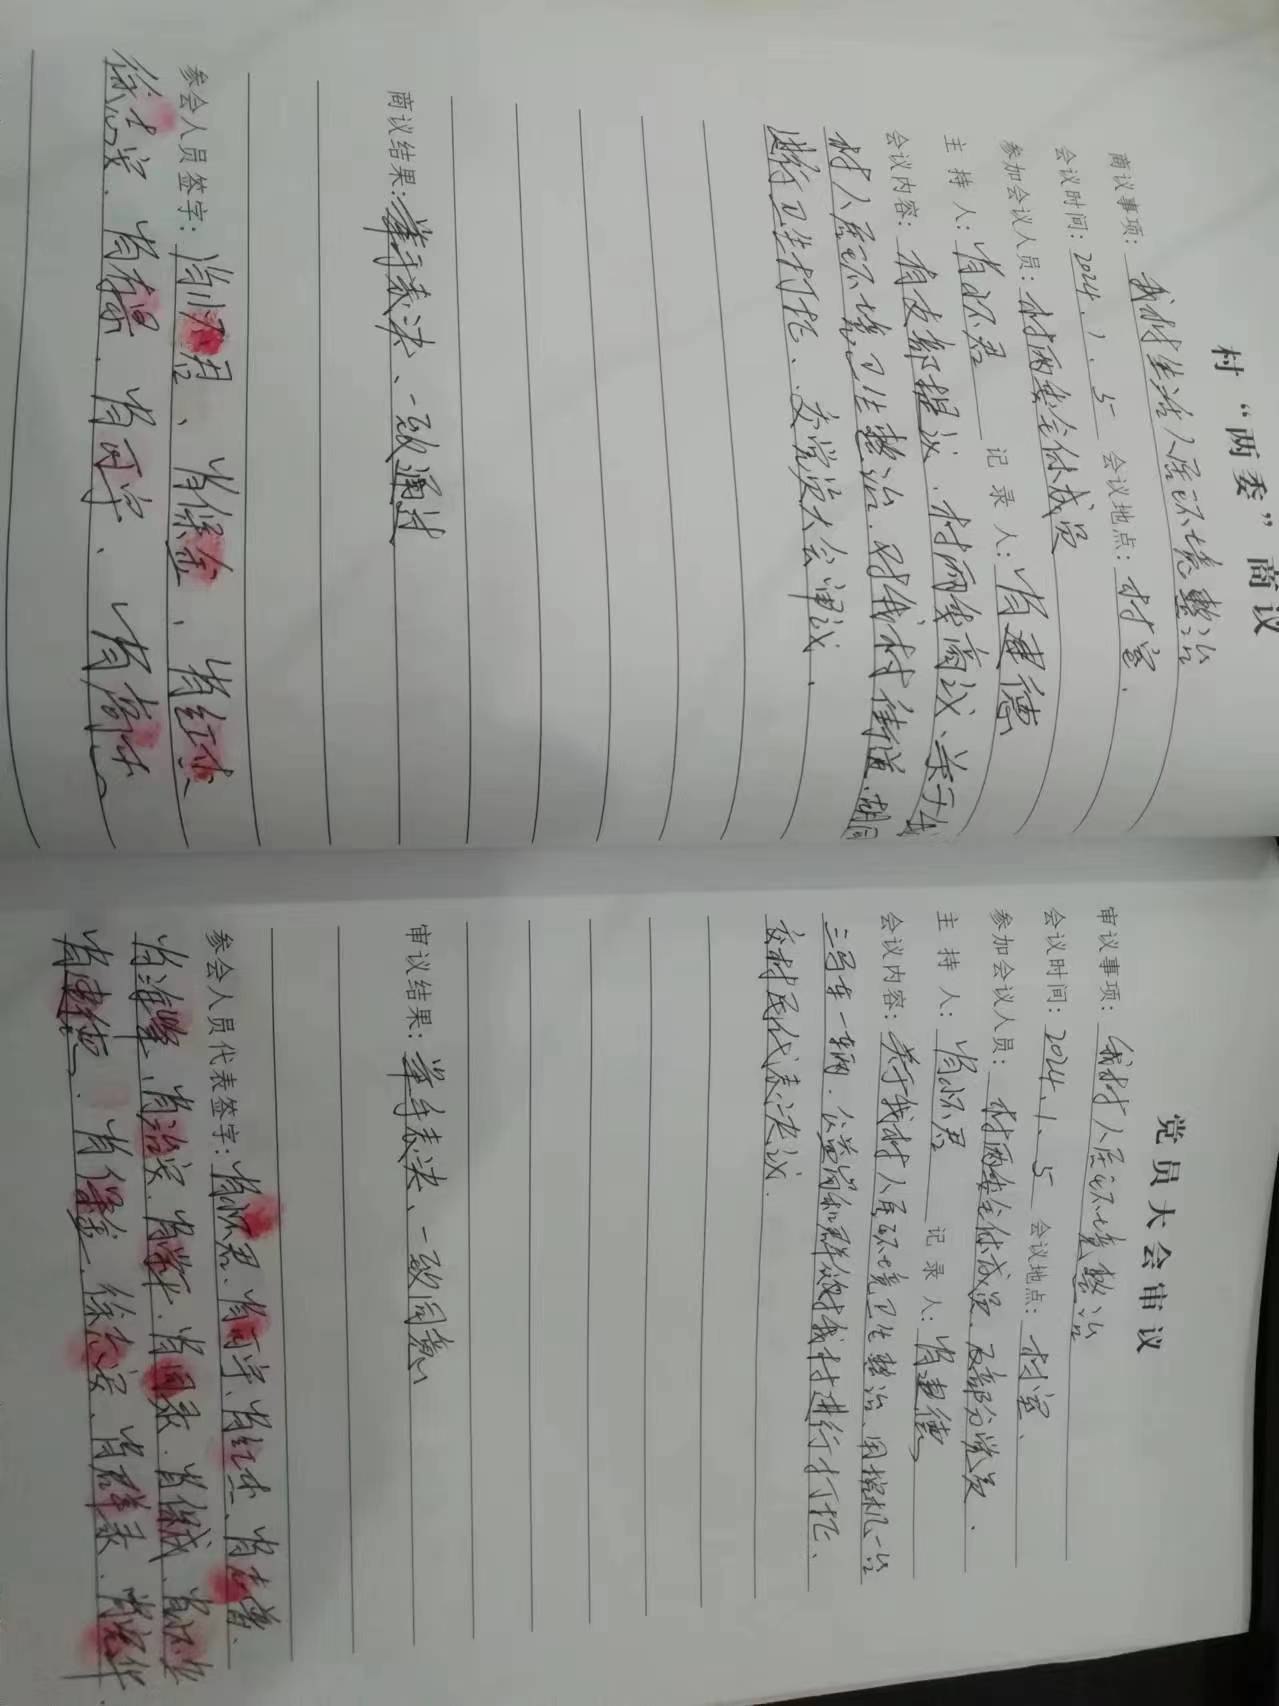 村“两委”商议
商议事项：我村生活人居环境整治
会议时间：2024.1.5 会议地点：村室.
参加会议人员：村两委全体成员
主持人：肖怀君 记录人：肖建德
会议内容：有支部提议、村两委商议、关于我
村人居环境卫生整治.对我村街道.胡同
进行卫生打扫、交党员大会审议.
商议结果：举手表决、一致通过
参会人员签字：肖怀君、肖保金、肖红杰
徐志安、肖、肖可宇、肖
党员大会审议
审议事项：我村人居环境整治
会议时间：2024.1.5 会议地点：村室.
参加会议人员：村两委全体成员及部分党员.
主持人：肖怀君 记录人：肖建德
会议内容：关于我村人居环境卫生整治、用挖机一台
三马车一辆.公益岗和群众对我村进行打扫、
交村民代表决议.
审议结果：举手表决、一致同意
参会人员代表签字：肖怀君、肖可宇、肖红杰、肖、
肖海军、肖治安、肖、肖同录、肖保成、肖
肖建德、肖保金、徐志安、肖群录、肖